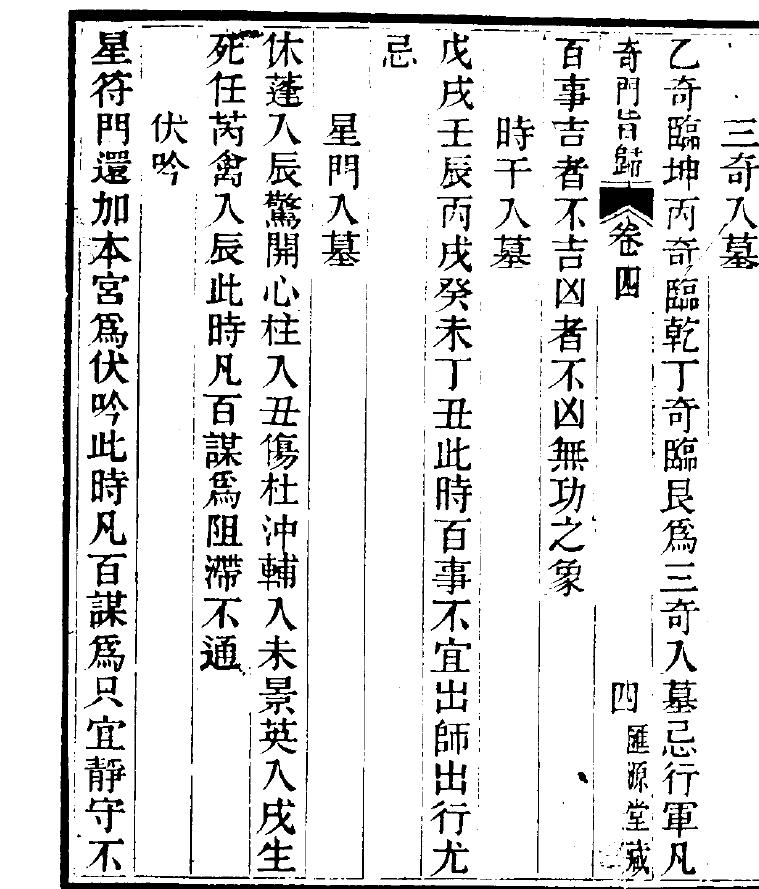 三奇入墓
乙奇臨坤丙奇臨乾丁奇臨艮為三奇入墓忌行軍凡
奇門旨歸 卷四 四 匯源堂藏
百事吉者不吉凶者不凶無功之象
時干入墓
戊戌壬辰丙戌癸未丁丑此時百事不宜出師出行尤
忌
星門入墓
休蓬入辰驚開心柱入丑傷杜沖輔入未景英入戌生
死任芮禽入辰此時凡百謀為阻滯不通
伏吟
星符門還加本宮為伏吟此時凡百謀為只宜靜守不